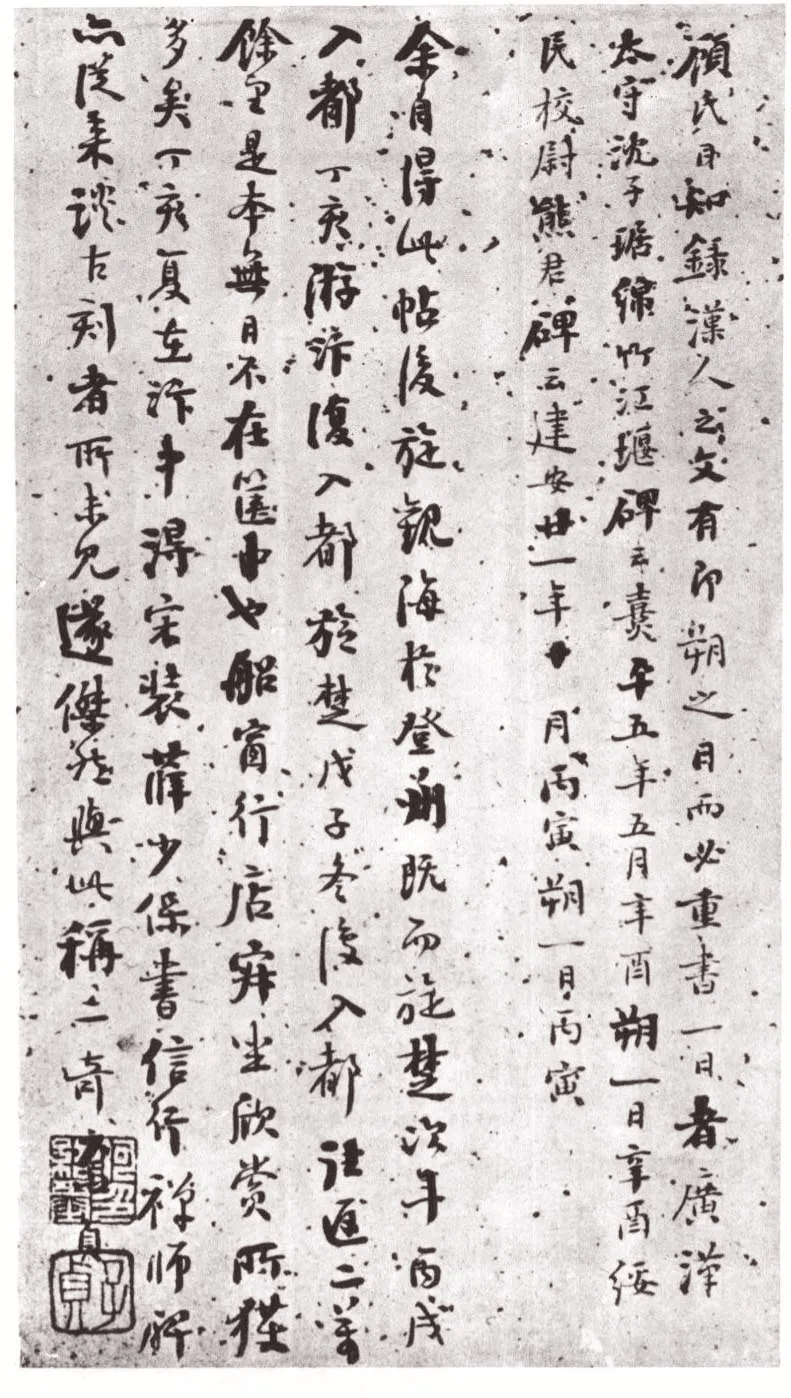 顧氏日知錄漢人之文有即朔之日而必重書一日者廣漢
太守沈子琚緜竹江堰碑云熹平五年五月辛酉朔一日辛酉綏
民校尉熊君碑云建安廿一年十月丙寅朔一日丙寅
余自得此帖後旋觀海於登州既而旋楚次年丙戌
入都丁亥游汴復入都旋楚戊子冬復入都往返二萬
餘里是本無日不在篋中也船窗行店寂坐欣賞所獲
多矣丁亥夏在汴中得宋裝薛少保書信行禪師碑
亦從來談古刻者所未見遂傑然與此稱二奇
貞
子貞